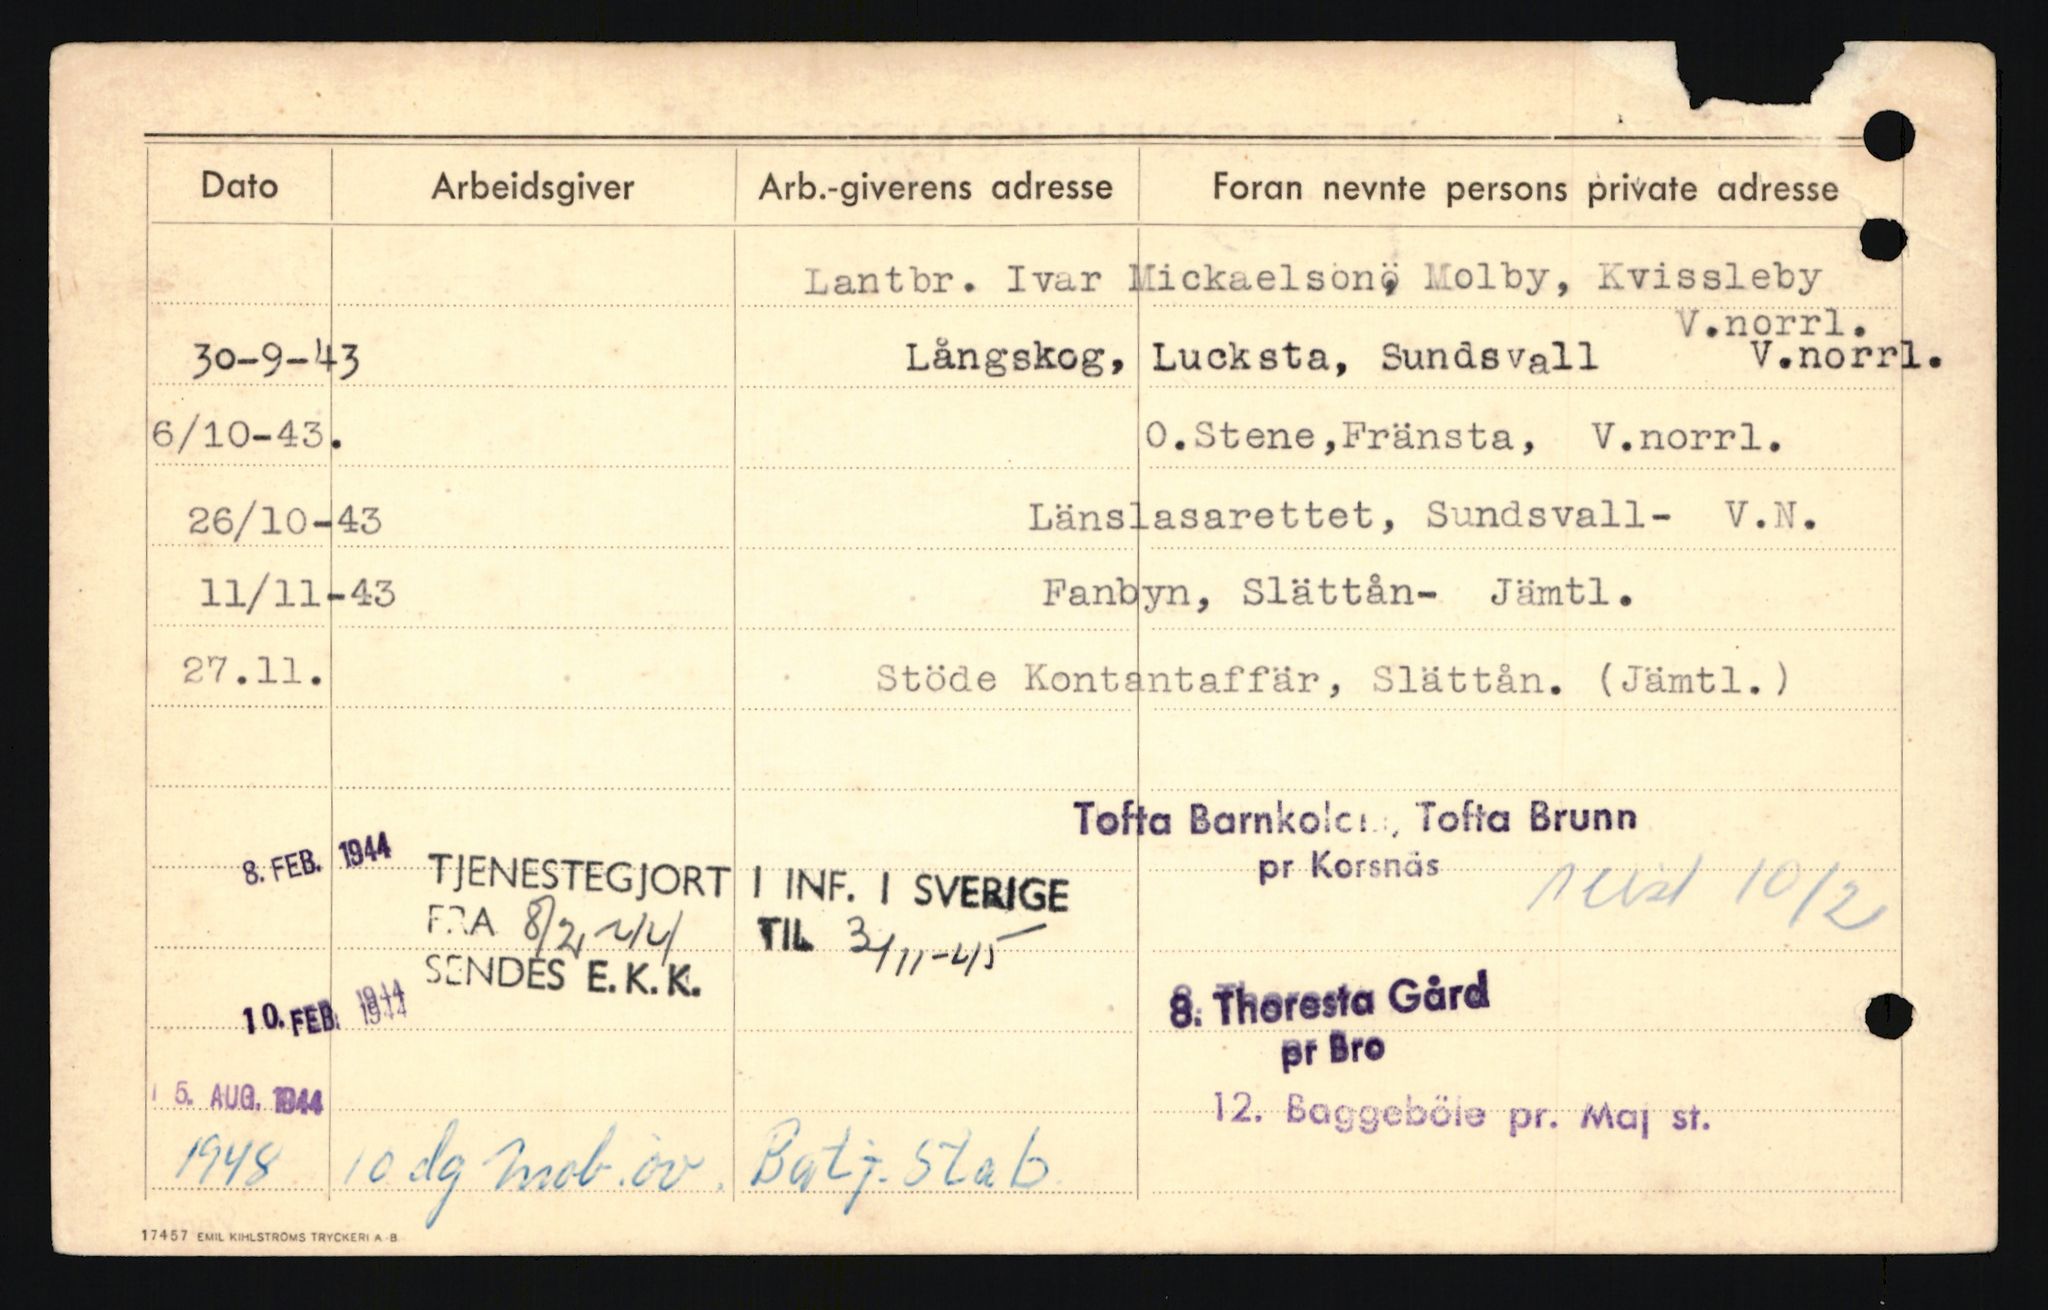 Dato Arbeidsgiver Arb.-giverens adresse Foran nevnte persons private adresse
Lantbr. Ivar Mickaelson, Molby, Kvissleby
V.norrl.
30-9-43 Långskog, Lucksta, Sundsvall V.norrl.
6/10-43. O.Stene,Fränsta, V.norrl.
26/10-43 Länslasarettet, Sundsvall- V.N.
11/11-43 Fanbyn, Slättån- Jämtl.
27.11. Stöde Kontantaffär, Slättån. (Jämtl.)
Tofta Barnkoloni, Tofta Brunn
pr Korsnäs
8. FEB. 1944 TJENESTEGJORT I INF. I SVERIGE
reist 10/2
FRA 8/2 44 TIL 3/11-45
SENDES E.K.K.
10. FEB. 1944 8. Thoresta Gård
pr Bro
5. AUG. 1944 12. Baggeböle pr. Maj st.
1948 10 dg mob.öv. Batj. Stab
17457 EMIL KIHLSTRÖMS TRYCKERI A.-B.